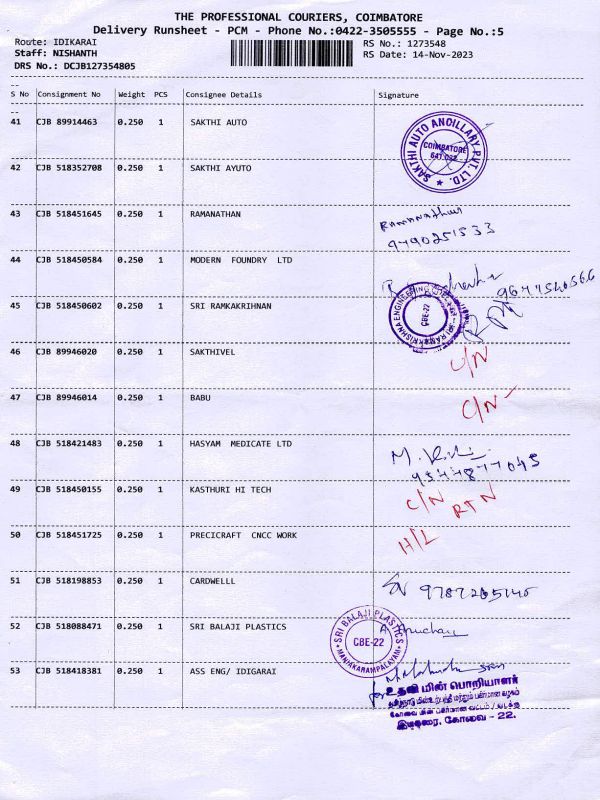 THE PROFESSIONAL COURIERS, COIMBATORE
Delivery Runsheet - PCM - Phone No.:0422-3505555 - Page No.:5
Route: IDIKARAI
RS No.: 1273548
Staff: NISHANTH
RS Date: 14-Nov-2023
DRS No.: DCJB127354805
S No Consignment No Weight PCS Consignee Details Signature
41 CJB 89914463 0.250 1 SAKTHI AUTO
SAKTHI AUTO ANCILLARY PVT. LTD. COIMBATORE
42 CJB 518352708 0.250 1 SAKTHI AYUTO
43 CJB 518451645 0.250 1 RAMANATHAN Ramanathan
9790251533
44 CJB 518450584 0.250 1 MODERN FOUNDRY LTD
45 CJB 518450602 0.250 1 SRI RAMKAKRIHNAN
CBE-22
46 CJB 89946020 0.250 1 SAKTHIVEL C/N
47 CJB 89946014 0.250 1 BABU C/N
48 CJB 518421483 0.250 1 HASYAM MEDICATE LTD
49 CJB 518450155 0.250 1 KASTHURI HI TECH C/N RTN
50 CJB 518451725 0.250 1 PRECICRAFT CNCC WORK H/L
51 CJB 518198853 0.250 1 CARDWELLL
52 CJB 518088471 0.250 1 SRI BALAJI PLASTICS
SRI BALAJI PLASTICS CBE-22 MANIAKARAMPALAYAM
53 CJB 518418381 0.250 1 ASS ENG/ IDIGARAI
உதவி மின் பொறியாளர்
கோவை - 22.